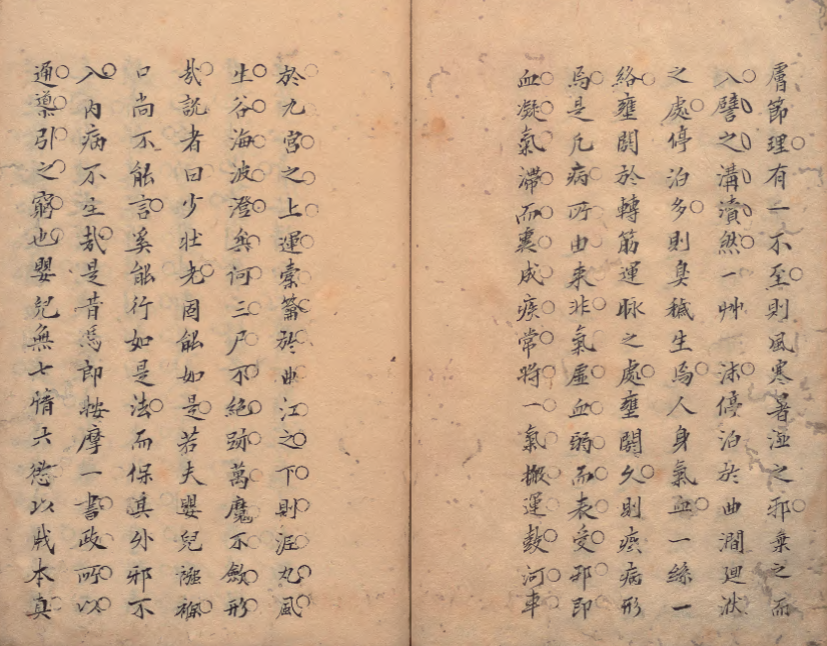 膚節理有一不至則風寒暑溼之邪乗之而
入譬之溝瀆然一艸一沫停泊於曲澗廻洑
之處停泊多則臭穢生焉人身氣血一絲一
絡壅閼於轉筋運脉之處壅閼久則瘀病形
焉是凡病所由来非氣虛血弱而表受邪即
血凝氣滯而裏成瘀常將一氣搬運鼓河車
於九宮之上運橐籥於曲江之下則泥丸風
生谷海波澄無何三尸不絕跡萬魔不斂形
㢤說者曰少壯老固能如是若夫嬰兒襁褓
口尚不能言奚能行如是法而保其外邪不
入內病不生㢤是昔馬郎按摩一書政所以
通導引之窮也嬰兒無七情六慾以戕本真